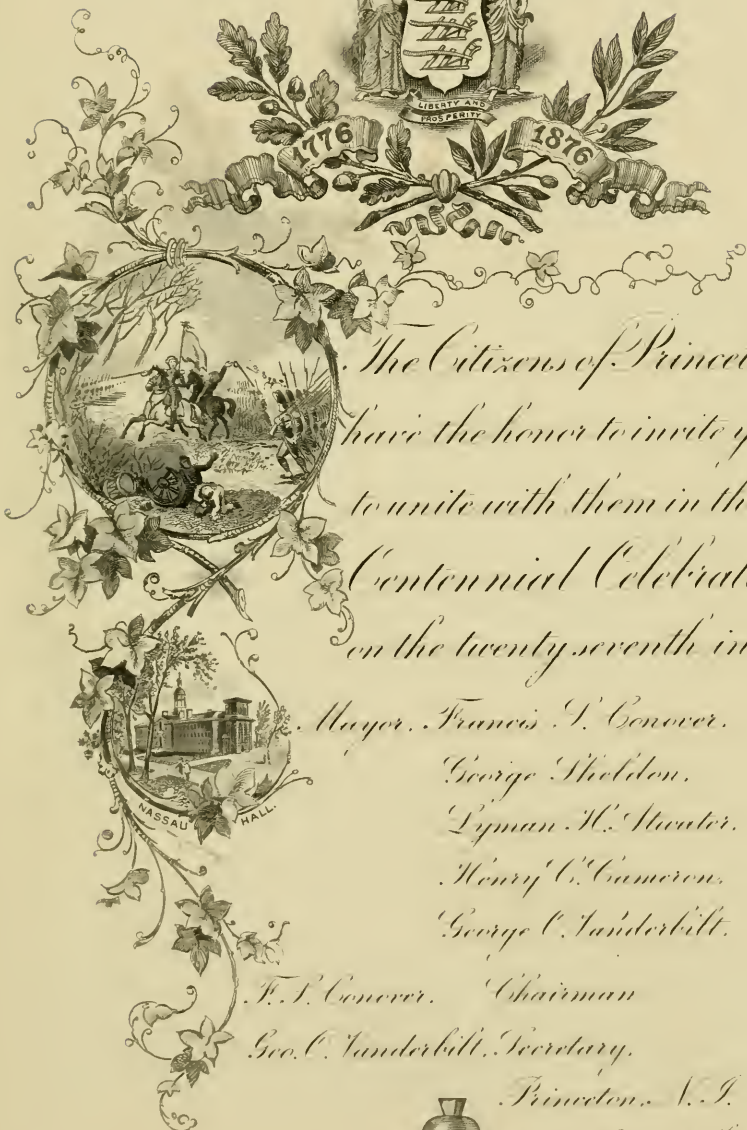 LIBERTY AND
PROSPERITY
1776 1876
The Citizens of Princet
have the honor to invite y
to unite with them in th
Centennial Celebrat
on the twenty seventh in
Mayor. Francis S. Conover.
George Sheldon.
Lyman H. Atwater.
Henry C. Cameron.
George C. Vanderbilt.
NASSAU HALL.
F. S. Conover. Chairman
Geo. C. Vanderbilt. Secretary.
Princeton. N. J.